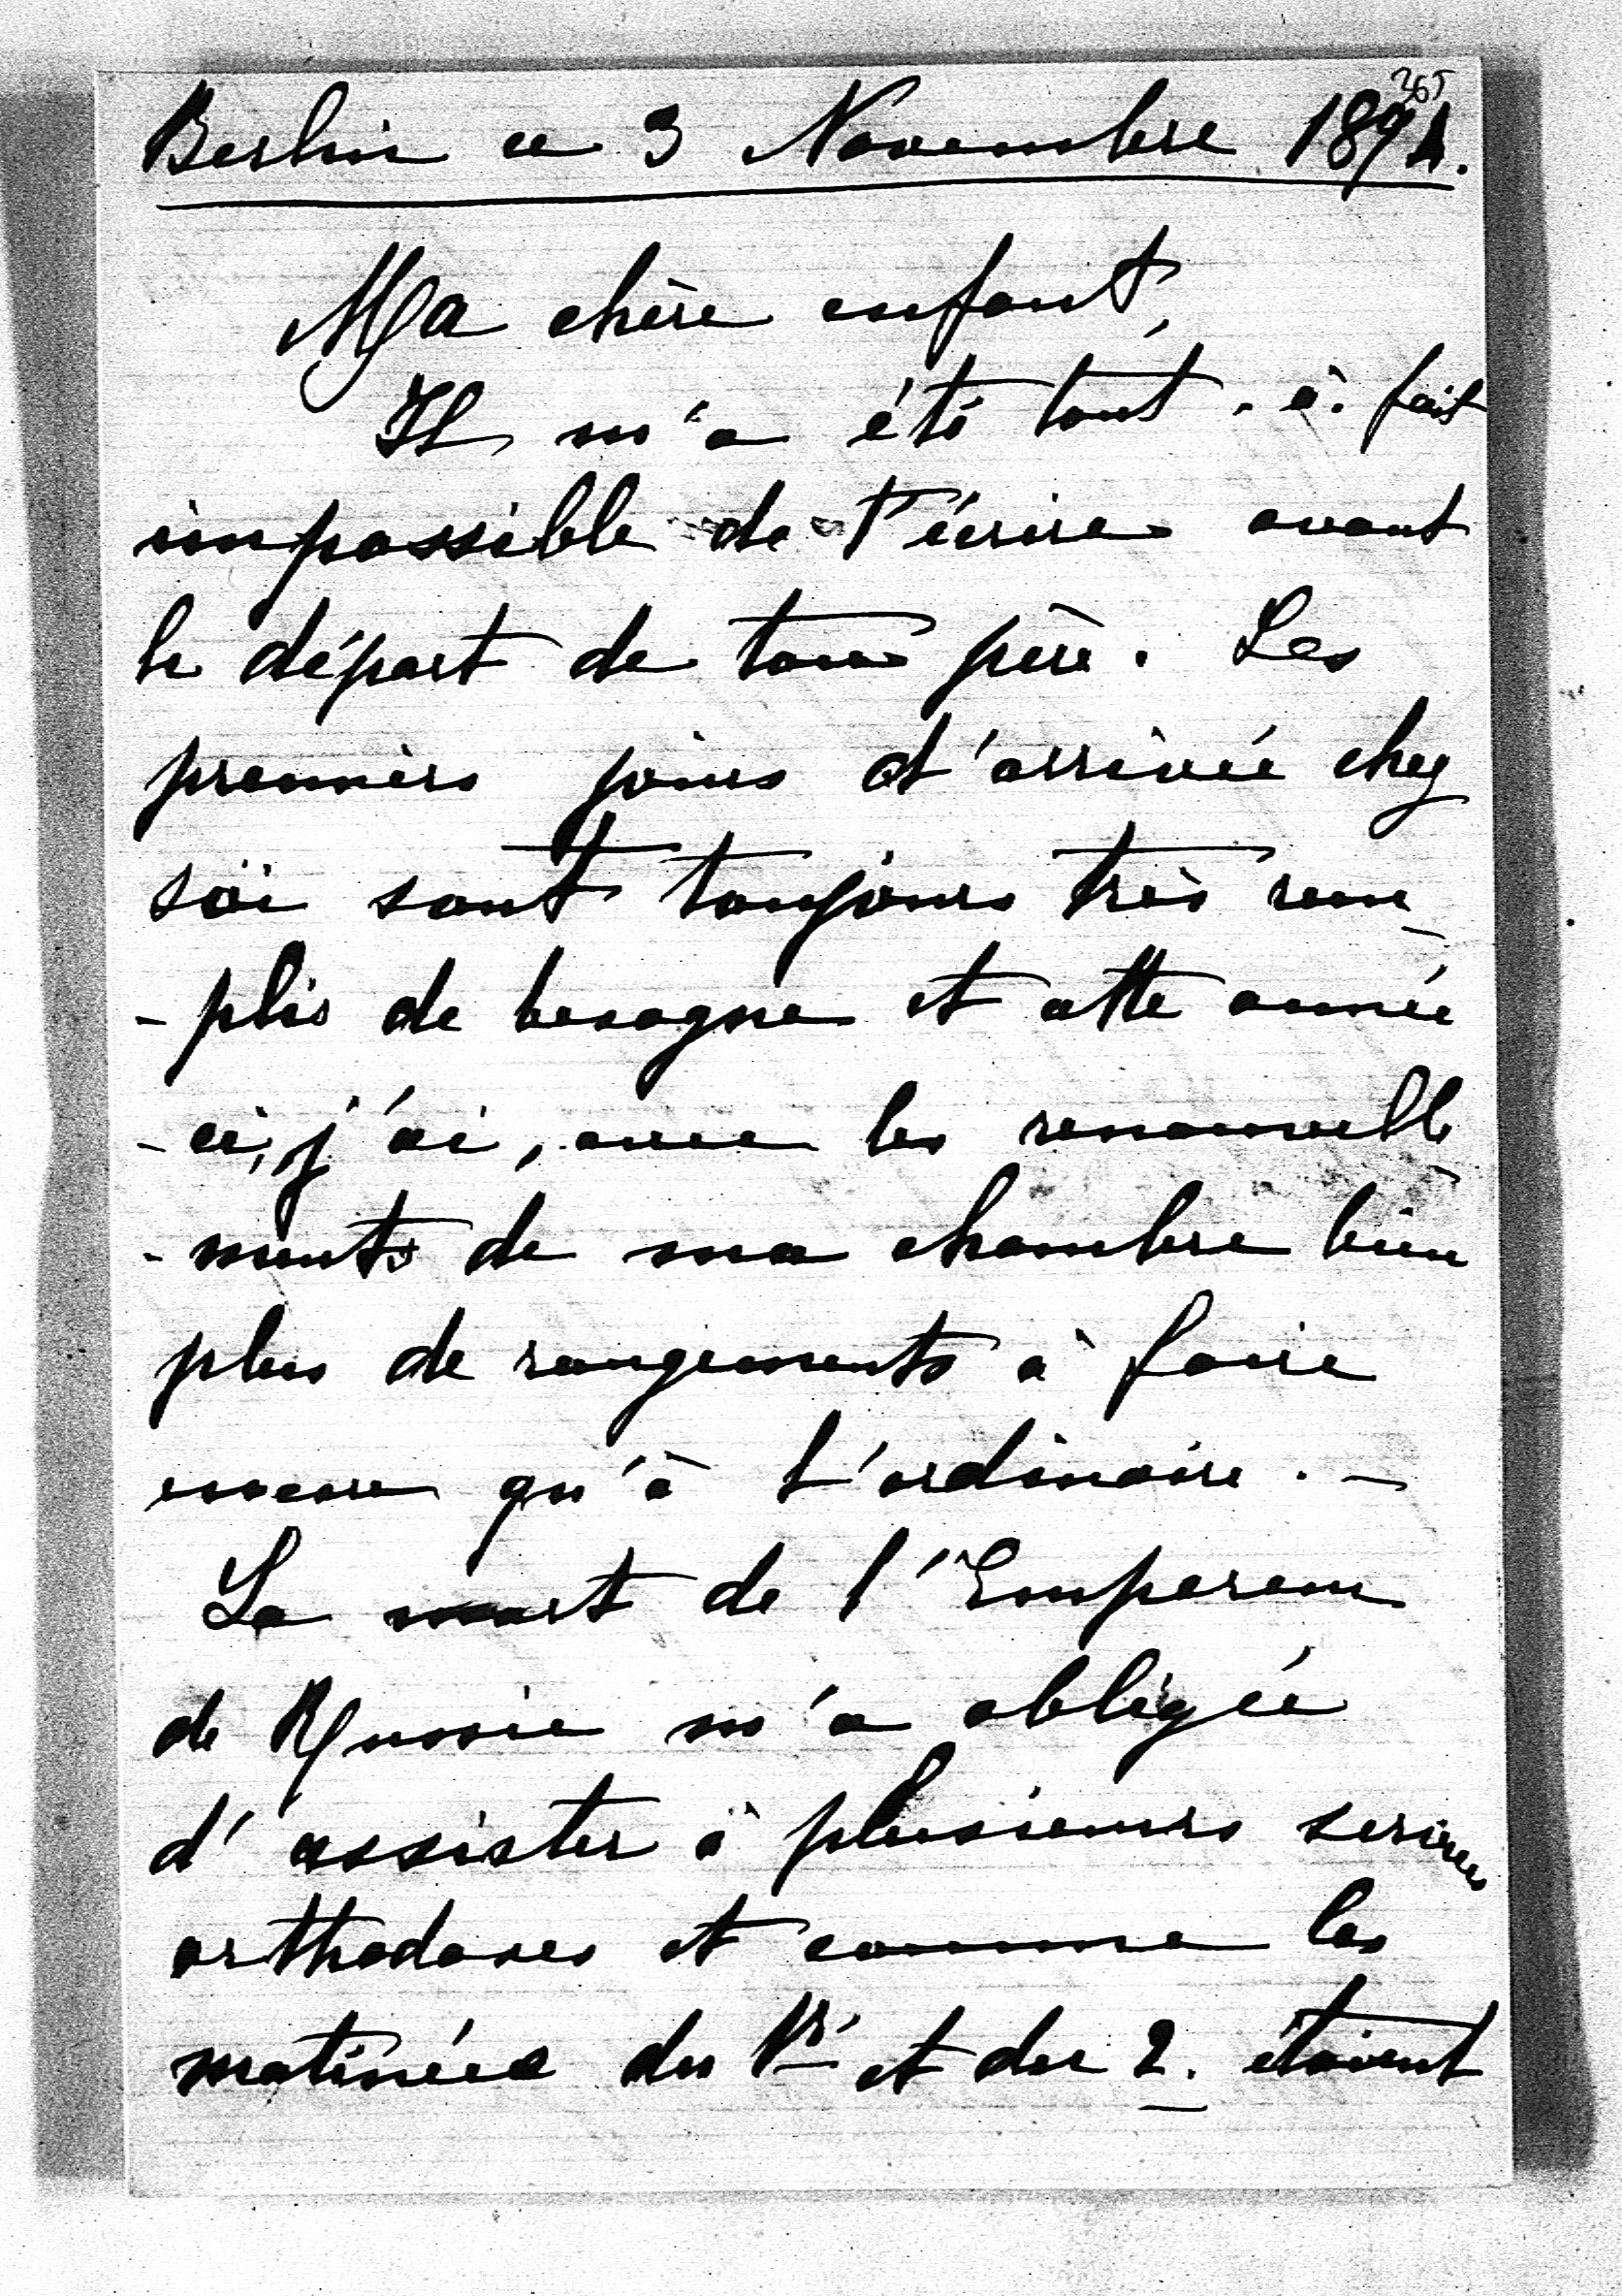 365
Berlin ce 3 Novembre 1894.
Ma chère enfant,
Il m'a été tout-à-fait
impossible de t'écrire avant
le départ de ton père. Les
premiers jours d'arrivée chez
soi sont toujours très rem
-plis de besogne et cette année
-ci, j'ai, avec les renouvelle
-ments de ma chambre bien
plus de rangements à faire
encore qu'à l'ordinaire. -
La mort de l'Empereur
de Russie m'a obligée
d'assister à plusieurs services
orthodoxes et comme les
matinées du 1er et du 2. étaient